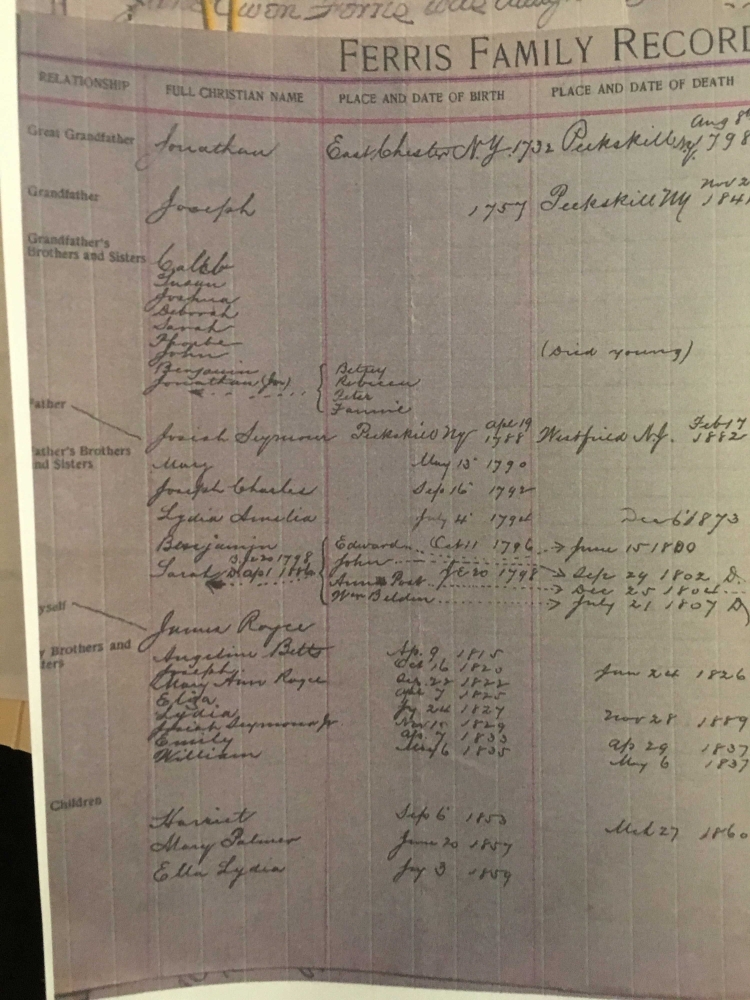 Ferris was
FERRIS FAMILY RECORD
RELATIONSHIP FULL CHRISTIAN NAME PLACE AND DATE OF BIRTH PLACE AND DATE OF DEATH
Great Grandfather Jonathan East Chester N.Y. 1732 Peekskill NY Aug 8th 1798
Grandfather Joseph 1757 Peekskill NY Nov 2 184
Grandfather's
Brothers and Sisters Caleb
Susan
Joshua
Deborah
Sarah
Phoebe
John (Died young)
Benjamin Betsey
Jonathan (Jr) Rebecca
Peter
Fannie
Father Josiah Seymour Peekskill NY Apl 19 1788 Westfield N.J. Feb 17 1882
ather's Brothers
nd Sisters Mary May 13 1790
Joseph Charles Sep 16 1792
Lydia Amelia July 4 1794 Dec 6 1873
Benjamin Edward Oct 11 1796 → June 15 1800
Sarah 1798 D. Apl John Je 20 1798 → Sep 29 1802 D.
Ann Post → Dec 25 1804
Wm Belden → July 21 1807 D
yself James Royce
y Brothers and
ters Angeline Betts Ap. 9 1815
Joseph Oct 16 1820 Jan 24 1826
Mary Ann Royce 22 1822
Eliza 7 1825
Lydia Jy 24 1827 Nov 28 1889
Josiah Seymour Jr. Nov 15 1829
Emily Ap. 7 1833 Ap 29 1837
William May 6 1835 May 6 1837
Children
Harriet Sep 6 1853 Mch 27 1860
Mary Palmer June 20 1857
Ella Lydia Jy 3 1859